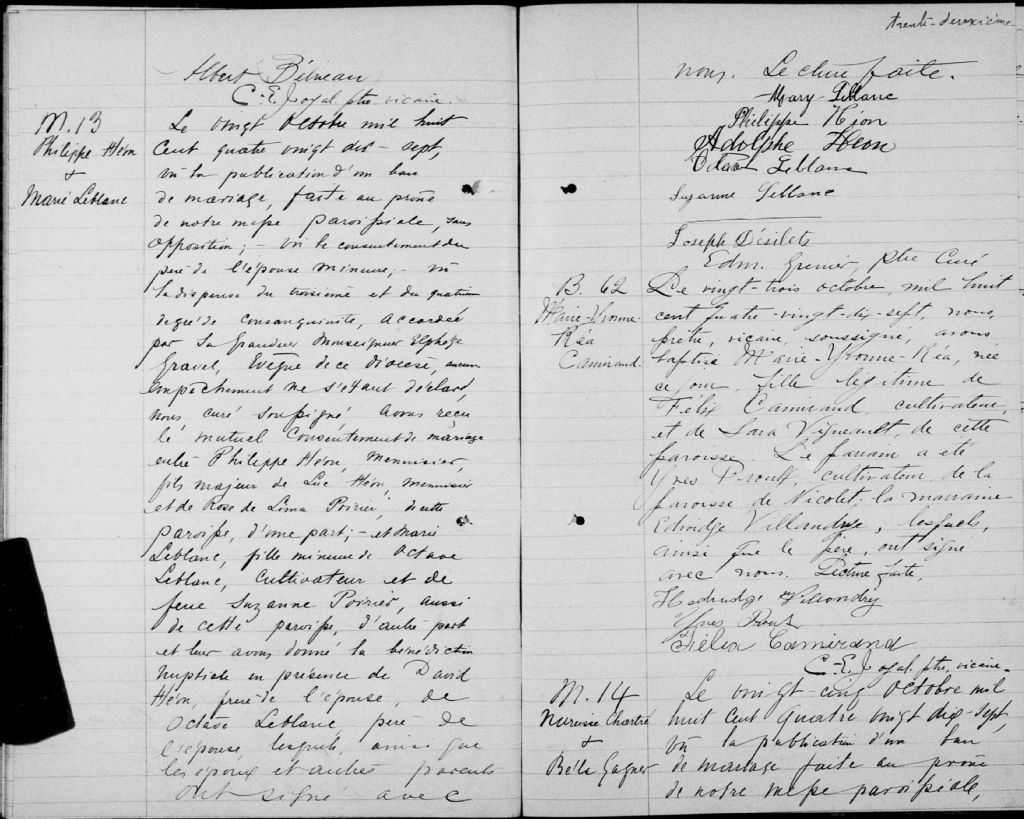 Albert Béliveau
C.-E. Joyal ptre. vicaire.
M. 13
Philippe Héon
&
Marie Leblanc
Le vingt Octobre mil huit
Cent quatre vingt dix-sept,
vû la publication d'un ban
de mariage, faite au prône
de notre messe paroissiale, sans
opposition; - vû le consentement du
père de l'épouse mineure; - vû
la dispense du troisième et du quatrième
degré de consanguinité, accordée
par Sa Grandeur Monseigneur Elphège
Gravel, Evêque de ce diocèse, aucun
empêchement ne s'étant déclaré,
nous curé soussigné avons reçu
le mutuel Consentement de mariage
entre Philippe Héon, menuisier,
fils majeur de Luc Héon, menuisier
et de Rose de Lima Poirier, de cette
paroisse, d'une part; - et Marie
Leblanc, fille mineure de Octave
Leblanc, Cultivateur et de
feue Suzanne Poirier, aussi
de cette paroisse, d'autre part
et leur avons donné la bénédiction
nuptiale en présence de David
Héon, frère de l'épouse, de
Octave Leblanc, père de
l'épouse, lesquels, ainsi que
les époux et autres parents
ont signé avec
trente-deuxième
nous. Lecture faite.
Mary Leblanc
Philippe Héon
Adolphe Heon
Octave Leblanc
Suzanne Leblanc
Joseph Désilets
Edm. Grenier, ptre Curé
B. 62
Marie-Yvonne-
Réa
Camirand.
Le vingt-trois octobre, mil huit
cent quatre-vingt-dix-sept, nous,
prêtre, vicaire, soussigné, avons
baptisé Marie-Yvonne-Réa, née
ce jour, fille légitime de
Félix Camirand, cultivateur,
et de Sara Vigneault, de cette
paroisse. Le parrain a été
Yves Proulx, cultivateur, de la
paroisse de Nicolet, la marraine
Edwidge Villandré, lesquels,
ainsi que le père, ont signé
avec nous. Lecture faite.
Hedwidge Villandry
Yves Proulx
Félix Camirand
C.-E. Joyal, ptre, vicaire.
M. 14
Narcisse Chartré
&
Bella Gagner
Le vingt cinq Octobre mil
huit cent quatre vingt dix-sept,
vû la publication d'un ban
de mariage faite au prône
de notre messe paroissiale,